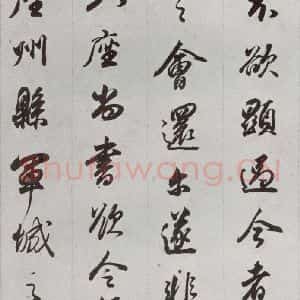 不欲顯過今者
之會還尒遂非
八座尚書欲令
座州縣軍城之
shufawang.cn